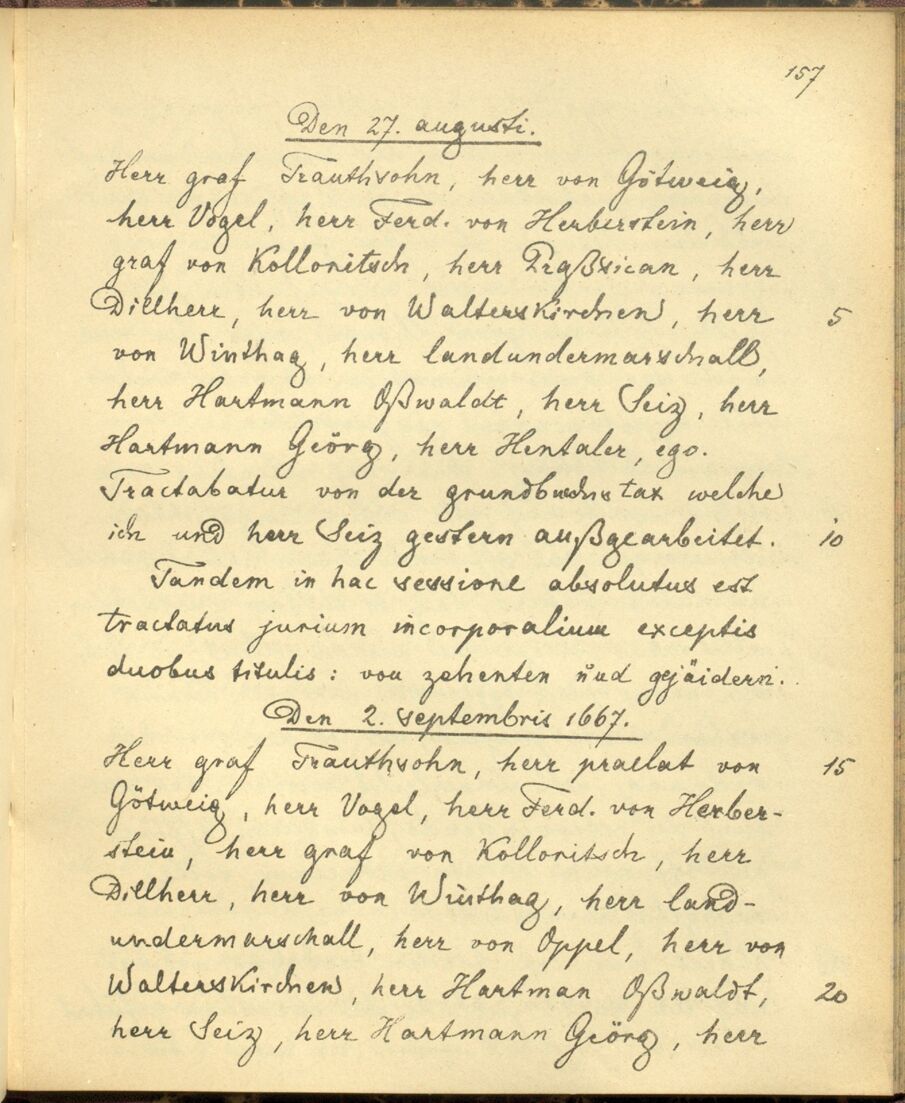 157
Den 27. augusti.
Herr graf Trauthsohn, herr von Götweig,
herr Vogel, herr Ferd. von Herberstein, herr
graf von Kollonitsch, herr, herr
Dillherr, herr von Walterskirchen, herr 5
von Winthag, herr landundermarschall,
herr Hartmann Oßwaldt, herr Seiz, herr
Hartmann Geörg, herr Hentaler, ego.
Tractabatur von der grundbuchs tax welche
ich und herr Seiz gestern außgearbeitet. 10
Tandem in hac sessione absolutus est
tractatus jurium incorporalium exceptis
duobus titulis: von zehenten und gejäidern.
Den 2. septembris 1667.
Herr graf Trauthsohn, herr praelat von 15
Götweig, herr Vogel, herr Ferd. von Herber-
stein, herr graf von Kollonitsch, herr
Dillherr, herr von Winthag, herr land-
undermarschall, herr von Oppel, herr von
Walterskirchen, herr Hartman Oßwaldt, 20
herr Seiz, herr Hartmann Geörg, herr